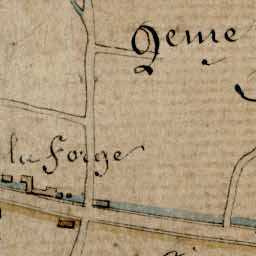 Deme
la Forge